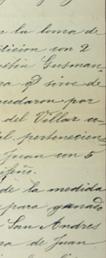 n la loma de
ticion con 2
stia Gusman
ra qe sive de
uedaron por
del Villar ex
el pertenecien
Juan con 5
de la medida
para ganado
San Andres
ra de Juan